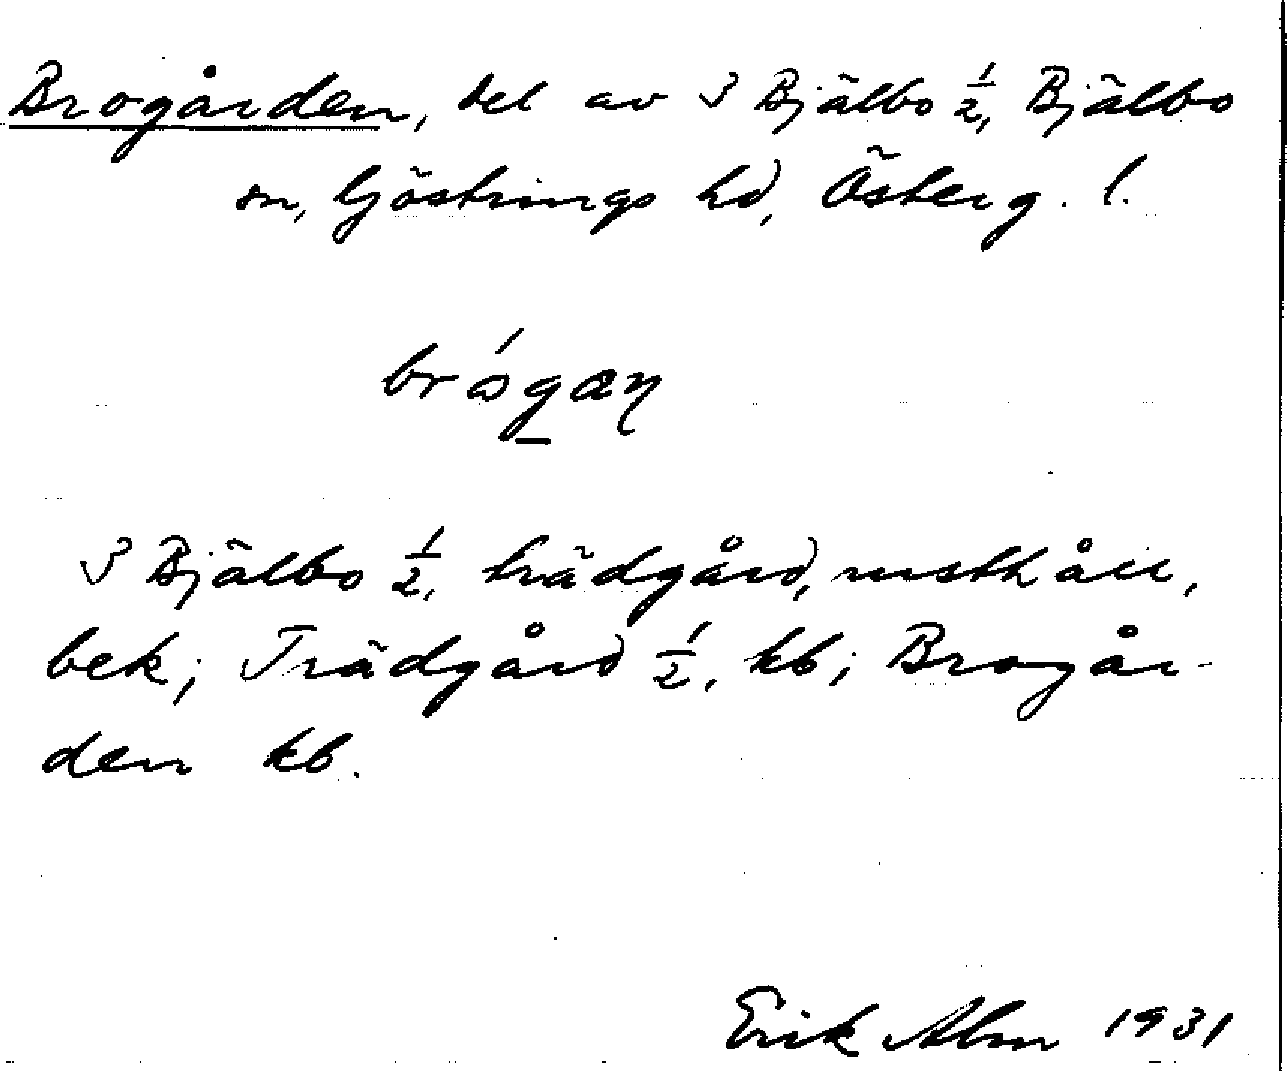 Brogården, del av 3 Bjälbo 1/2, Bjälbo
sn, Göstrings hd, Österg. l.
brógaɳ
3 Bjälbo 1/2, trädgård, rusthåll,
bek; Trädgård 1/2, kb; Brogår-
den kb.
Erik Alm 1931